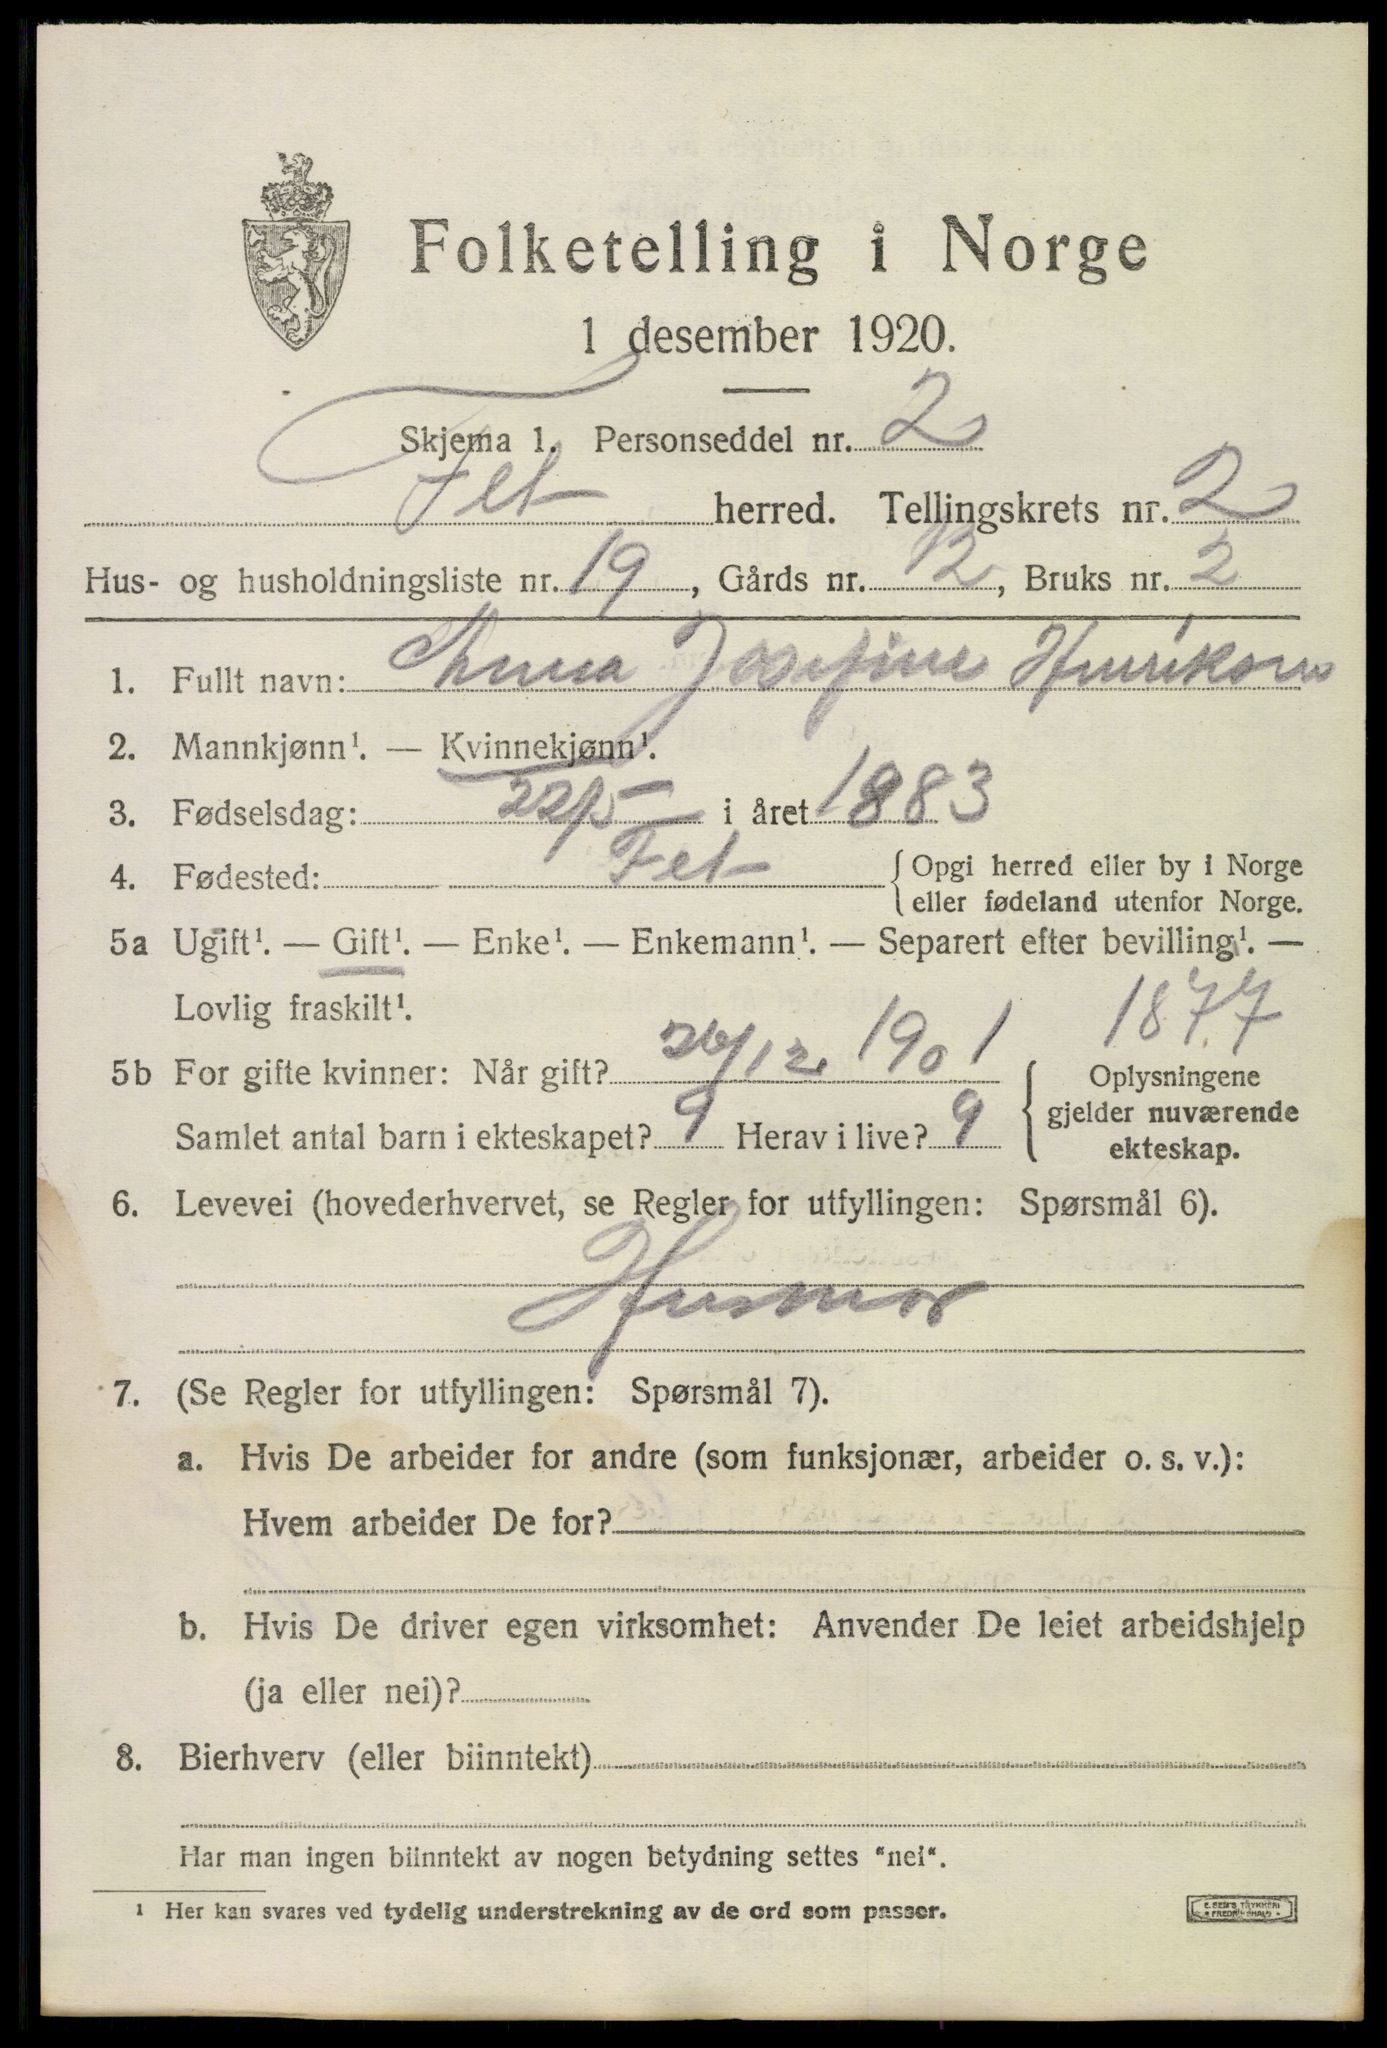 Folketelling i Norge
1 desember 1920.
Skjema 1. Personseddel nr. 2
Fet herred. Tellingskrets nr. 2
Hus- og husholdningsliste nr. 19, Gårds nr. 12, Bruks nr. 2
1. Fullt navn: Anna Josefine Henriksen
2. Mannkjønn¹. — Kvinnekjønn¹.
3. Fødselsdag: 22/5 i året 1883
4. Fødested: Fet { Opgi herred eller by i Norge
eller fødeland utenfor Norge.
5a Ugift¹. — Gift¹. — Enke¹. — Enkemann¹. — Separert efter bevilling¹. —
Lovlig fraskilt¹. 1877
5b For gifte kvinner: Når gift? 26/12 1901 { Oplysningene
gjelder nuværende
ekteskap.
Samlet antal barn i ekteskapet? 9 Herav i live? 9
6. Levevei (hovederhvervet, se Regler for utfyllingen: Spørsmål 6).
Husmor
7. (Se Regler for utfyllingen: Spørsmål 7).
a. Hvis De arbeider for andre (som funksjonær, arbeider o. s. v.):
Hvem arbeider De for?
b. Hvis De driver egen virksomhet: Anvender De leiet arbeidshjelp
(ja eller nei)?
8. Bierhverv (eller biinntekt)
Har man ingen biinntekt av nogen betydning settes "nei".
¹ Her kan svares ved tydelig understrekning av de ord som passer.
E. SEM'S TRYKKERI
FREDRIKSHALD